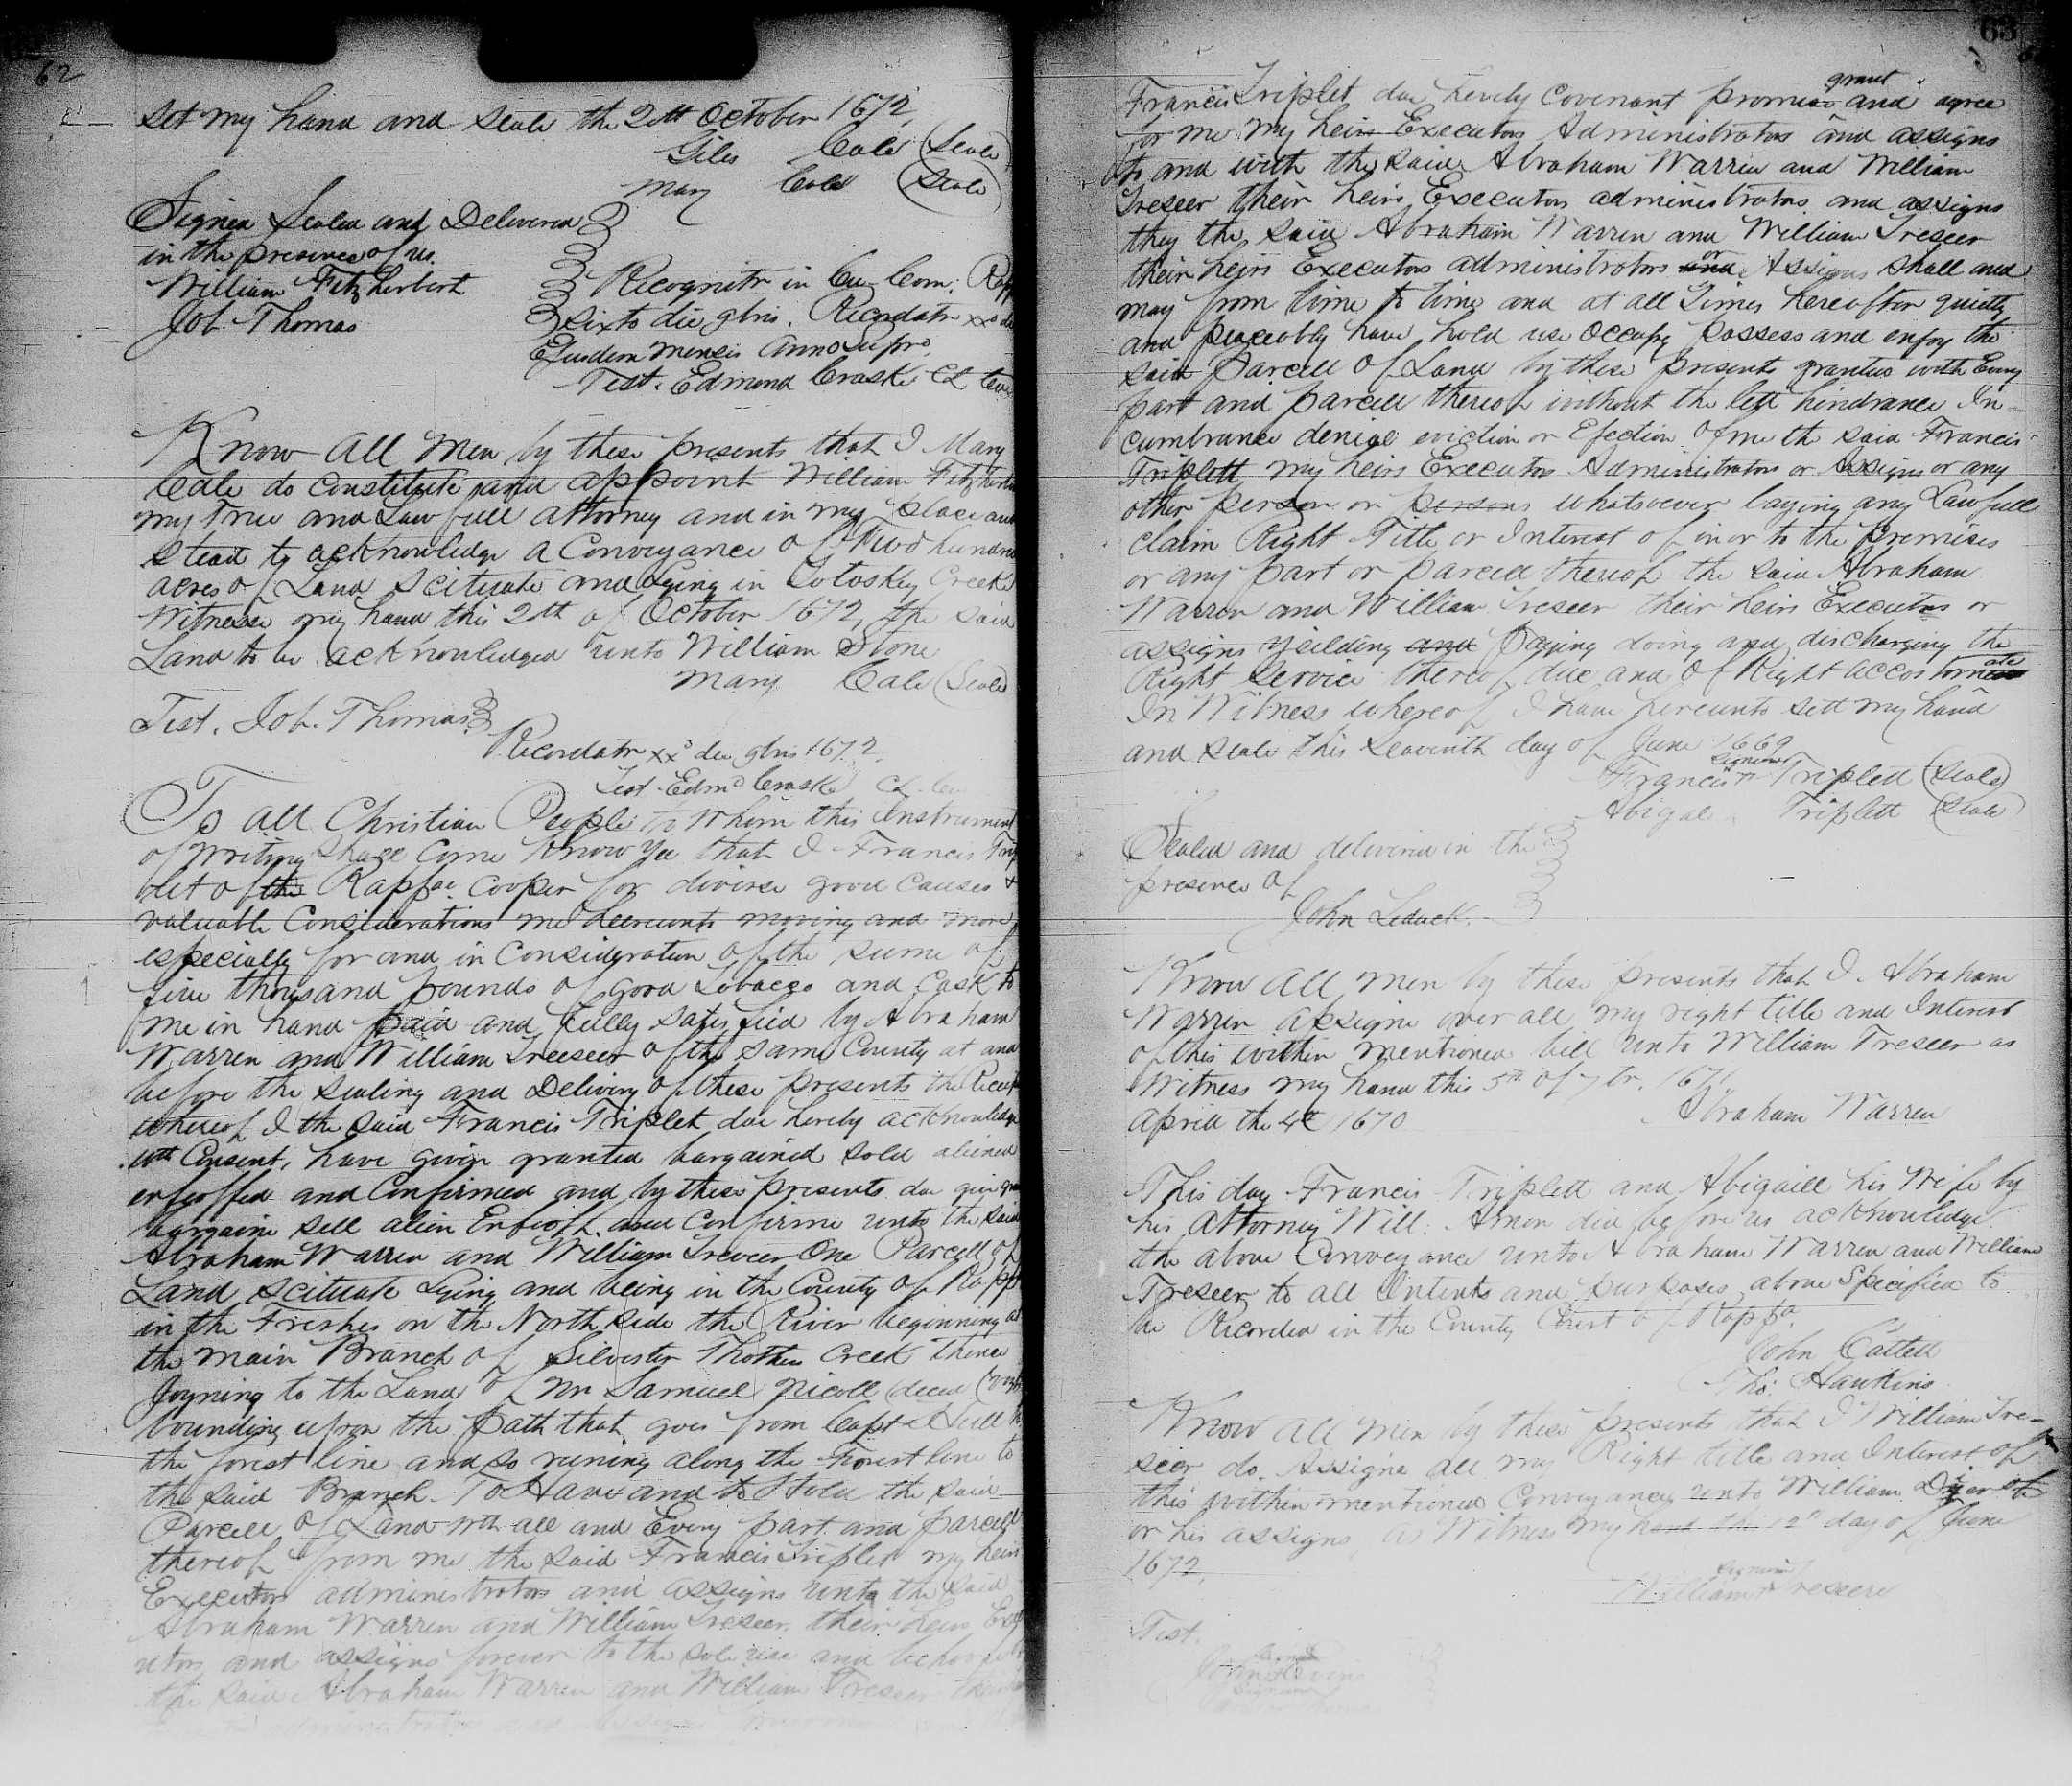 62
set my hand and seale the 2th October 1672,
Giles Cale (Seale)
Mary Cale (Seale)
Signed Sealed and Delivered
in the presence of us.
William Fitzherbert
Job. Thomas
Recognitr in Cu Com: Rapp
Sixto die 9bris. Recordatr xxo die
Ejusdem mensis Anno Supro,
Test. Edmond Craske CL
Know All Men by these presents that I Mary
Cale do constitute and appoint William Fitzherbert
my True and Lawfull attorney and in my place and
Stead to acknowledge a Conveyance of Two hundred
acres of Land Scituate and Lying in Totoskey Creeke
Witnesse my hand this 2th of October 1672, the said
Land to be acknowledged unto William Stone
Mary Cale (Seale)
Test. Job. Thomas
Recordatr xxo die 9bris 1672.
Test. Edmd Craske CL
To All Christian People to Whom this Instrument
of Writing shall Come Know Yee that I Francis Trip
let of the Rappae. Cooper for diverse good Causes &
valuable Considerations me Hereunto moving and more
especially for and in Consideration of the sume of
five thousand pounds of good Tobacco and Cask to
me in hand paid and fully satisfied by Abraham
Warren and William Treeseer of the same County at and
before the sealing and Delivery of these presents the Receipt
whereof I the said Francis Triplet doe hereby acknowledge
wth Consent, have given granted bargained sold aliened
enfeoffed and Confirmed and by these presents doe give
bargaine sell alien Enfeoff and Confirme unto the said
Abraham Warren and William Treceer One Parcell of
Land scituate Lying and being in the County of Rapp
in the Freshes on the North side the River beginning at
the main Branch of Silvester Thatcher Creek thence
Joyning to the Land of Mr Samuel Nicoll (deced)
bounding upon the path that goes from Capt Hull
the forest line and so runing along the Forest line to
the said Branch To Have and to Hold the said
Parcell of Land wth all and Every part and parcell
thereof from me the said Francis Triplet my heirs
Executors administrators and assigns unto the said
Abraham Warren and William Treseer their heirs Exec
utors and assigns forever to the sole use and behoofe
the said Abraham Warren and William Treseer their
administrators and assigns
63
Francis Triplet doe hereby Covenant promise grant and agree
for me my heirs Executors Administrators and assigns
to and with the said Abraham Warren and William
Treseer their heirs Executors administrators and assigns
they the said Abraham Warren and William Treseer
their heirs Executors administrators and or Assigns shall and
may from time to time and at all Times hereafter quietly
and peaceably have hold use occupy possess and enjoy the
said Parcell of Land by these presents granted with Every
part and parcell thereof without the lett hindrance In=
cumbrance denial eviction or Ejection of me the said Francis
Triplett my heirs Executors Administrators or Assigns or any
other person or persons whatsoever laying any Lawfull
claim Right Title or Interest of in or to the premises
or any part or parcell thereof the said Abraham
Warren and William Treseer their heirs Executors or
assigns yeilding and paying doing and discharging the
Right Service thereof due and of Right
In Witness whereof I have hereunto sett my hand
and seale this Seaventh day of June 1669
signum
Francis Triplett (Seale)
Abigale Triplett (Seale)
Sealed and delivered in the
presence of
John Leduck.
Know All men by these presents that I Abraham
Warren assigne over all my right title and Interest
of this within mentioned bill unto William Treseer as
Witness my hand this 5th of 7br. 1671.
Aprill the 4th 1670 Abraham Warren
This day Francis Triplett and Abigaill his Wife by
his Attorney Will: Amon did before us acknowledge
the above Conveyance unto Abraham Warren and William
Treseer to all Intents and purposes above Specified to
be Recorded in the County Court of Rappa.
John Cattett
Tho: Hawkins
Know All Men by these presents that I William Tre-
seer do Assigne all my Right title and Interest of
this within mentioned Conveyance unto William
or his assigns as Witness my hand this 12th day of June
1672,
signum
William Treseere
Test.
signum
John
signum